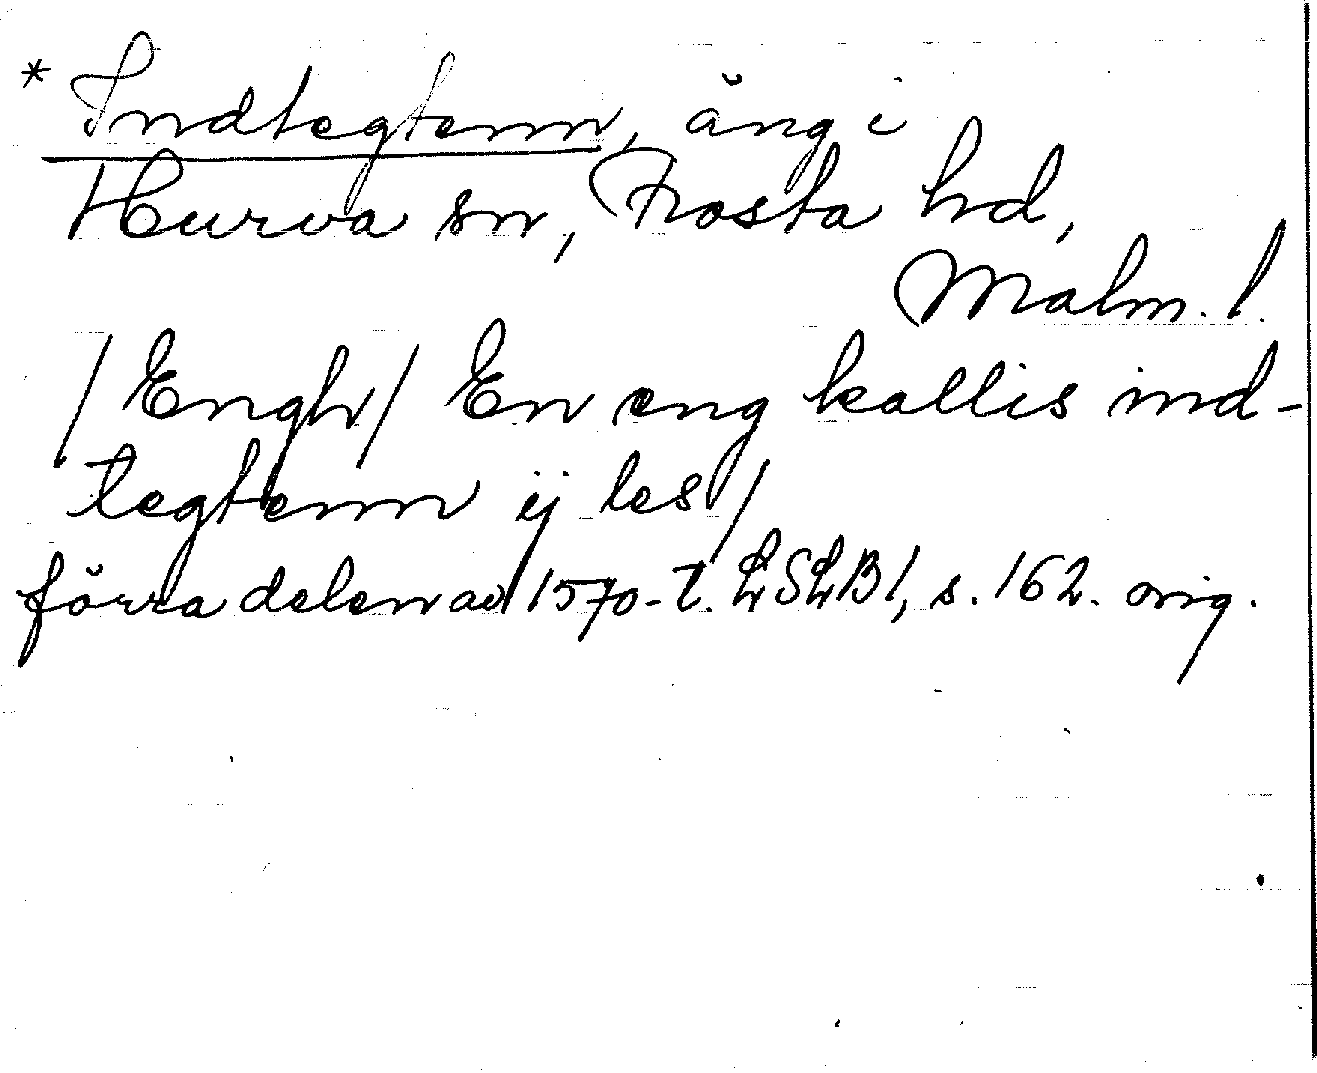 * Indtegtenn, äng i
Hurva sn, Frosta hd,
Malm. l.
/Engh/ En eng kallis ind-
tegtenn ij les/
förra delen av 1570-t. LSLB1, s. 162. orig.